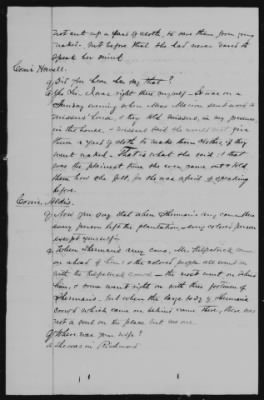 not cut up a yard of cloth, to save them from going
naked. But before that she had never dared to
speak her mind.
Comr Howell.
Q Did you hear her say that?
A Yes Sir. I was right there myself. It was on a
Sunday evening when Miss
house, & they told missess, in my presence,
in the house, & missess said she would not give
them a yard of cloth to make them clothes if they
went naked. That is what she said; & that
was the plainest time she ever came out & told
them how she felt, for she was afraid of speaking
before.
Comr. Aldis.
Q Now you say that when Sherman's army came
every person left the plantation, every colored person
except yourself?
A When Sherman's army came, Mr. Kilpatrick
on ahead of him, & the colored people all went on
with the Kilpatrick crowd — the most went on before
him, & some went right on with this portion of
Sherman's. But when the large body of Sherman's
crowd which came on behind came there, there was
not a soul on the place but me one.
Q Where was your wife?
A She was in Richmond